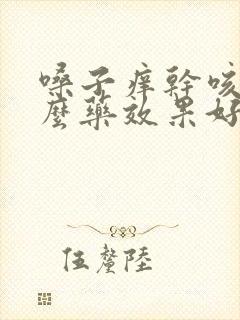 嗓子痒幹咳
麼藥效果好
伍釐陸